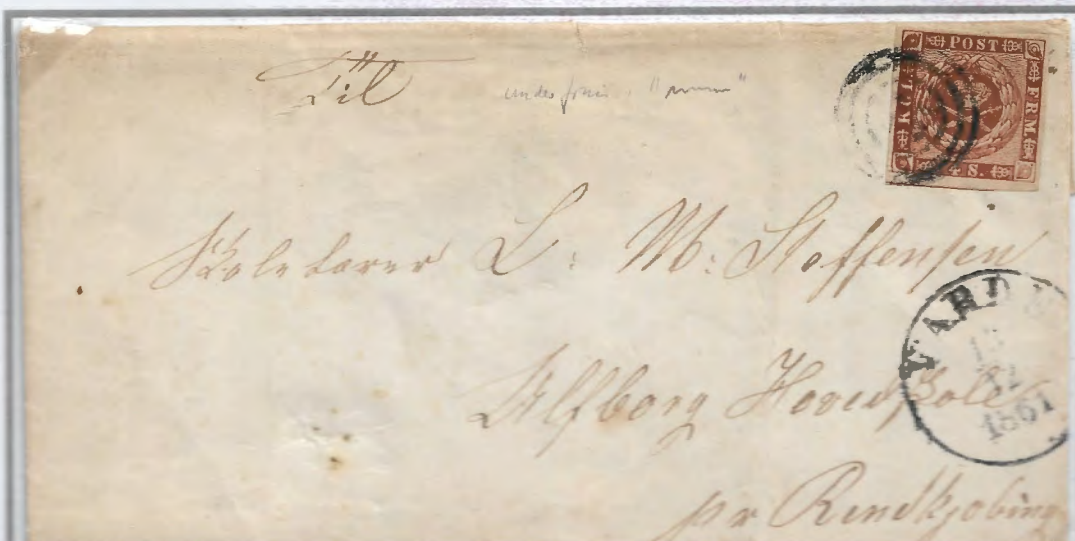 Til
KGL POST FRM
4 S.
Skolelærer L: M: Steffensen
VARDE
12
1861
Ulfborg Hovedskole
pr Rindkjøbing